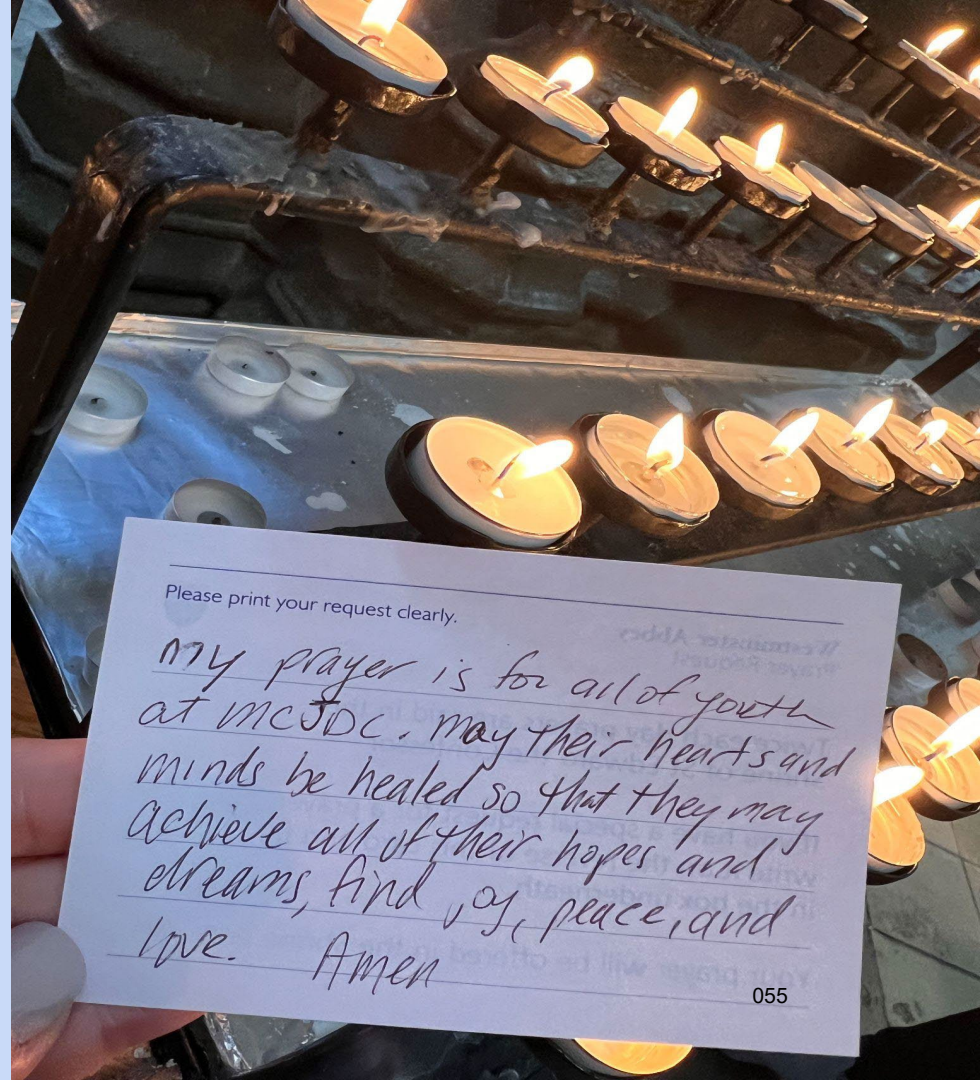 Please print your request clearly.
My prayer is for all of youth
at MCJDC. May their hearts and
minds be healed so that they may
achieve all of their hopes and
dreams, find joy, peace, and
love. Amen
055
Westminster Abbey
Prayer Request